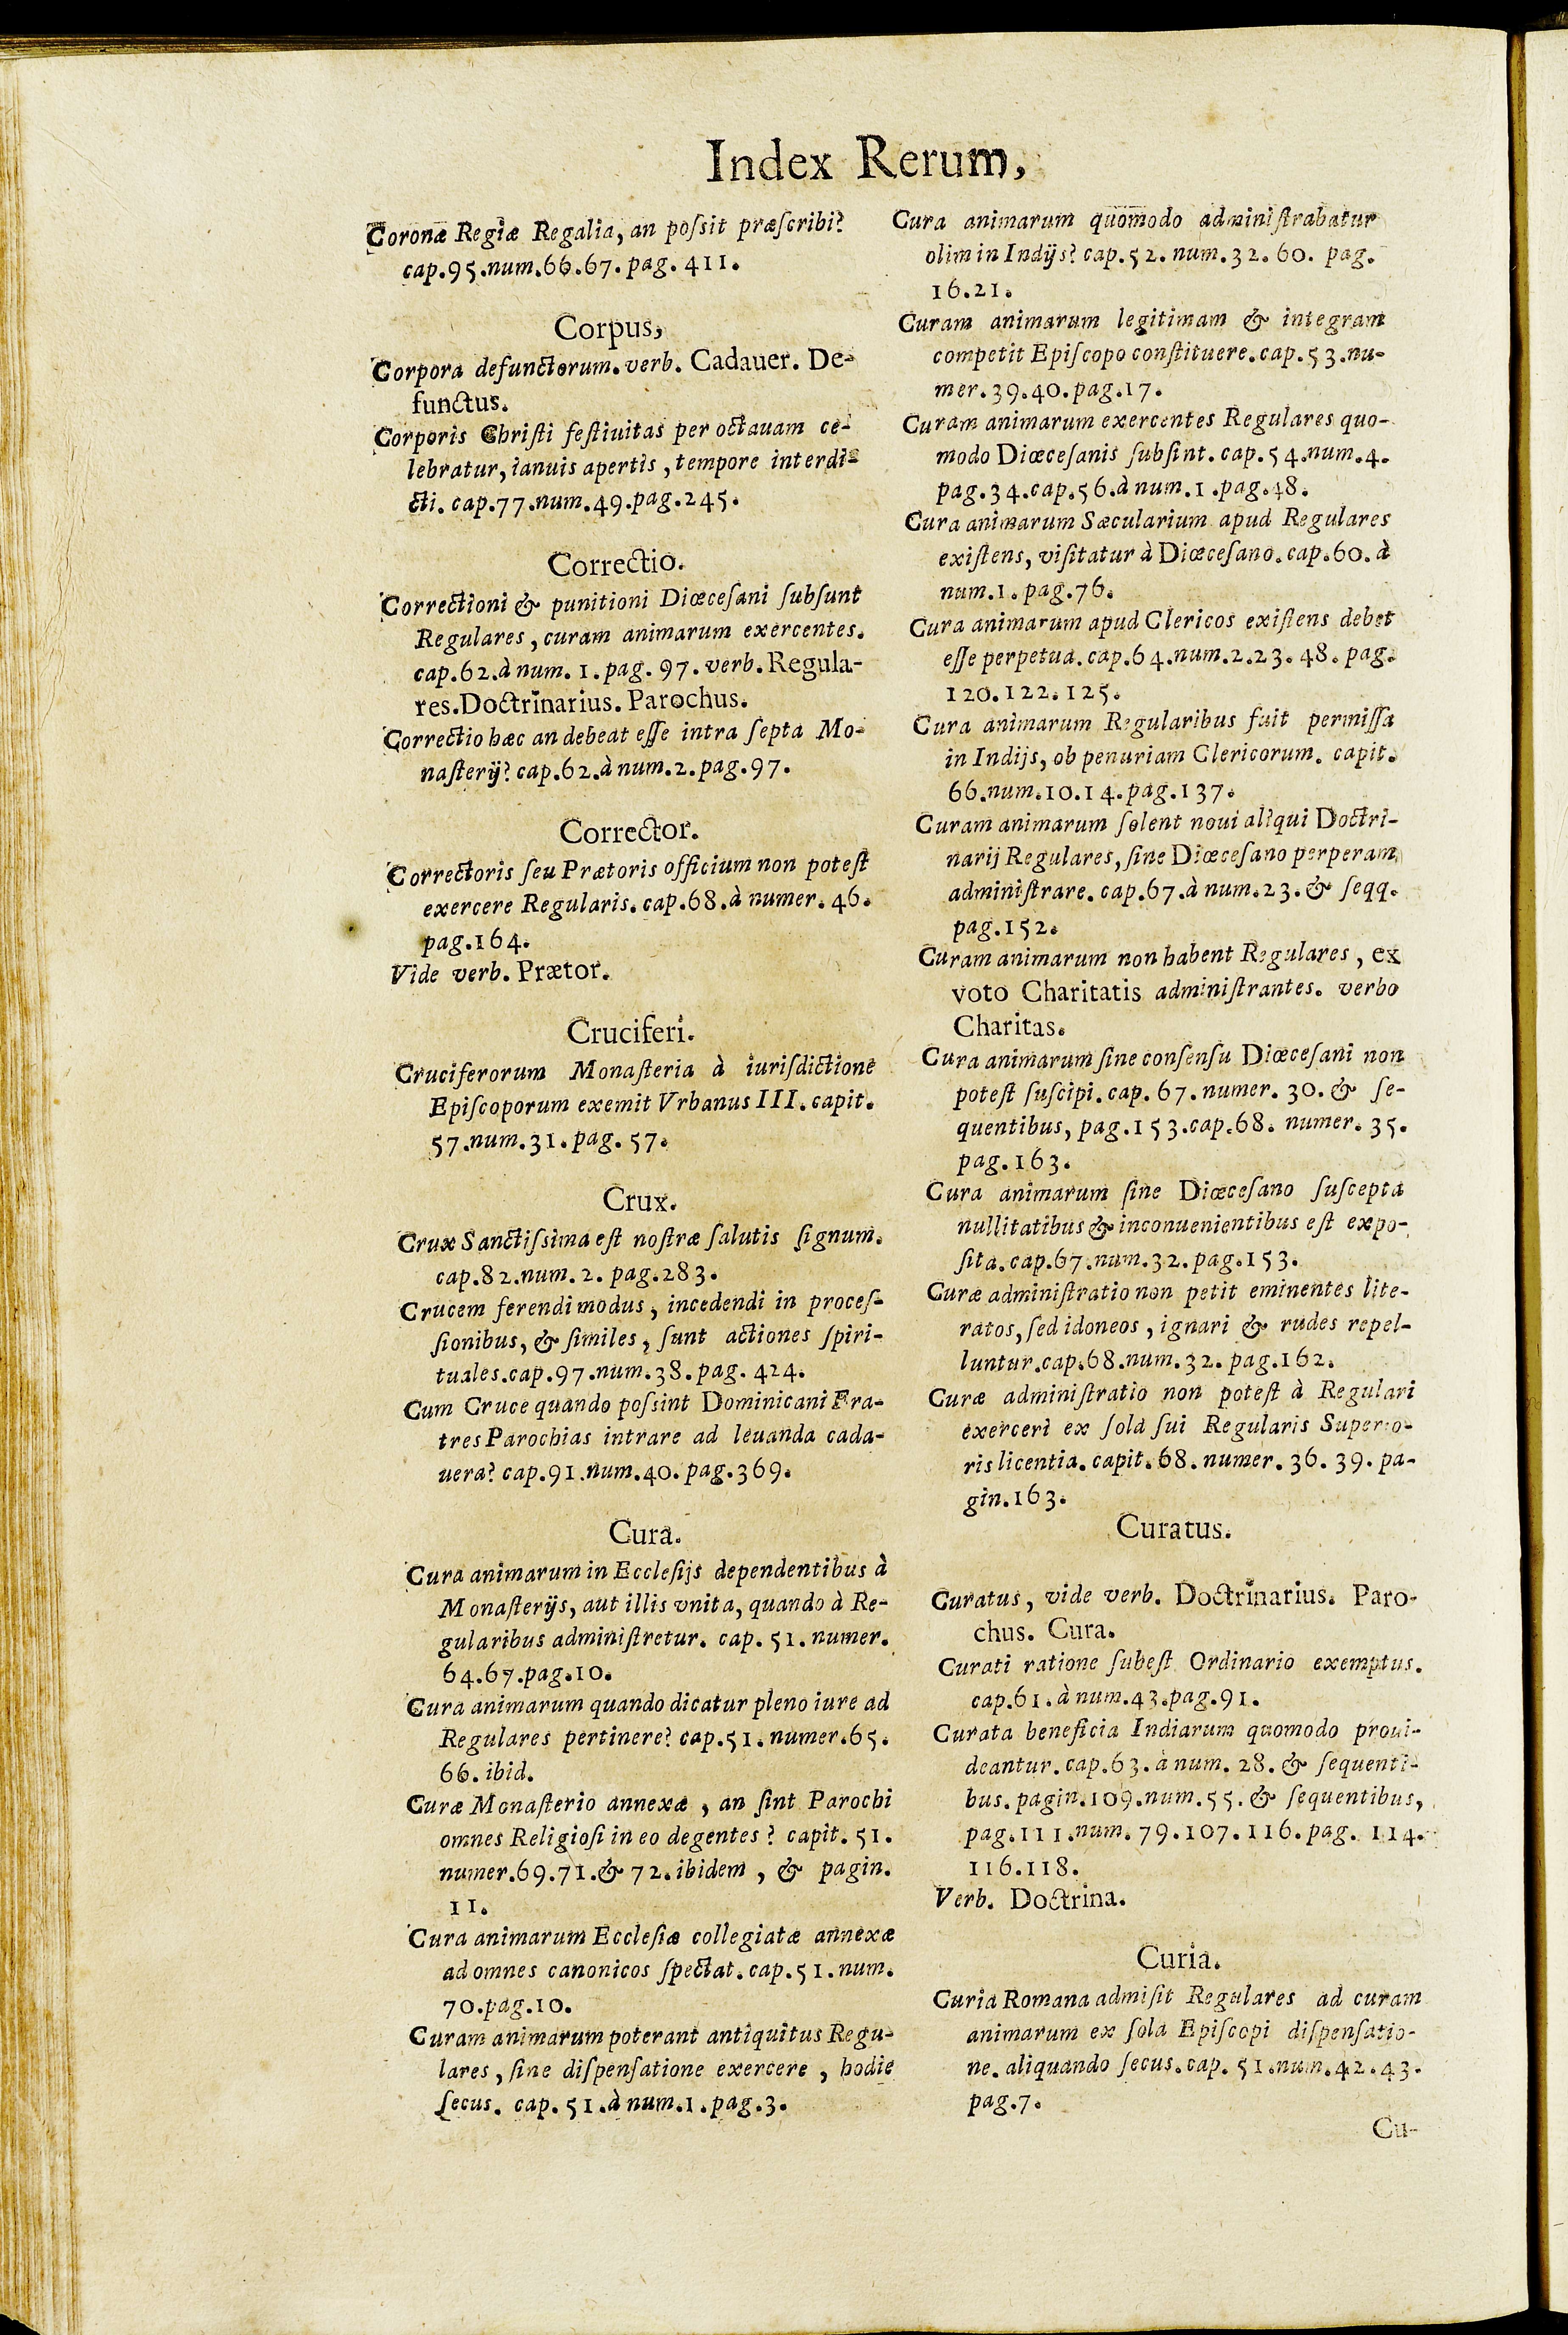 Index Rerum,
Coronæ Regiæ Regalia, an poſsit præſcribi?
cap.95.num.66.67.pag.411.
Corpus,
Corpora defunctorum.verb. Cadauer. De-
functus.
Corporis Chriſti feſtiuitas per octauam ce-
lebratur, ianuis apertis, tempore interdi-
cti. cap.77.num.49.pag.245.
Correctio.
Correctioni & punitioni Diœceſani ſubſunt
Regulares, curam animarum exercentes.
cap.62.à num. 1. pag. 97. verb. Regula-
res.Doctrinarius. Parochus.
Correctio hæc an debeat eſſe intra ſepta Mo-
naſterij? cap.62.à num.2.pag.97.
Corrector.
Correctoris ſeu Prætoris officium non poteſt
exercere Regularis. cap.68.à numer. 46.
pag.164.
Vide verb. Prætor.
Cruciferi.
Cruciferorum Monaſteria à iuriſdictione
Epiſcoporum exemit Vrbanus III. capit.
57.num.31.pag. 57.
Crux.
Crux Sanctiſsima eſt noſtræ ſalutis ſignum.
cap.82.num.2. pag.283.
Crucem ferendi modus, incedendi in proceſ-
ſionibus, & ſimiles, ſunt actiones ſpiri-
tuales.cap.97.num.38.pag. 424.
Cum Cruce quando poſsint Dominicani Fra-
tres Parochias intrare ad leuanda cada-
uera? cap.91.num.40.pag.369.
Cura.
Cura animarum in Eccleſijs dependentibus à
Monaſterijs, aut illis vnita, quando à Re-
gularibus adminiſtretur. cap. 51. numer.
64.67.pag.10.
Cura animarum quando dicatur pleno iure ad
Regulares pertinere? cap.51. numer.65.
66. ibid.
Curæ Monaſterio annexæ, an ſint Parochi
omnes Religioſi in eo degentes? capit. 51.
numer.69.71.& 72. ibidem, & pagin.
11.
Cura animarum Eccleſiæ collegiatæ annexæ
ad omnes canonicos ſpectat.cap.51.num.
70.pag.10.
Curam animarum poterant antiquitus Regu-
lares, ſine diſpenſatione exercere, hodie
ſecus. cap. 51.à num.1.pag.3.
Cura animarum quomodo adminiſtrabatur
olim in Indijs? cap.52. num. 32.60. pag.
16.21.
Curam animarum legitimam & integram
competit Epiſcopo conſtituere.cap.53.nu-
mer.39.40.pag.17.
Curam animarum exercentes Regulares quo-
modo Diœceſanis ſubſint. cap.54.num.4.
pag.34.cap.56.à num.1.pag.48.
Cura animarum Sæcularium apud Regulares
exiſtens, viſitatur à Diœceſano.cap.60. à
num.1. pag.76.
Cura animarum apud Clericos exiſtens debet
eſſe perpetua. cap.64.num.2.23.48. pag.
120.122.125.
Cura animarum Regularibus fuit permiſſa
in Indijs, ob penuriam Clericorum. capit.
66.num.10.14.pag.137.
Curam animarum ſolent noui aliqui Doctri-
narij Regulares, ſine Diœceſano perperam
adminiſtrare. cap.67.à num.23. & ſeqq.
pag.152.
Curam animarum non habent Regulares, ex
voto Charitatis adminiſtrantes. verbo
Charitas.
Cura animarum ſine conſenſu Diœceſani non
poteſt ſuſcipi. cap. 67. numer. 30. & ſe-
quentibus, pag.153.cap.68. numer. 35.
pag.163.
Cura animarum ſine Diœceſano ſuſcepta
nullitatibus & inconuenientibus eſt expo-
ſita. cap.67.num.32.pag.153.
Curæ adminiſtratio non petit eminentes lite-
ratos, ſed idoneos, ignari & rudes repel-
luntur.cap.68.num.32.pag.162.
Curæ adminiſtratio non poteſt à Regulari
exerceri ex ſola ſui Regularis Superio-
ris licentia. capit.68. numer. 36. 39. pa-
gin.163.
Curatus.
Curatus, vide verb. Doctrinarius. Paro-
chus. Cura.
Curati ratione ſubeſt Ordinario exemptus.
cap.61. à num.43.pag.91.
Curata beneficia Indiarum quomodo proui-
deantur. cap.63. à num. 28. & ſequenti-
bus. pagin.109.num.55. & ſequentibus,
pag.111.num.79.107.116.pag. 114.
116.118.
Verb. Doctrina.
Curia.
Curia Romana admiſit Regulares ad curam
animarum ex ſola Epiſcopi diſpenſatio-
ne. aliquando ſecus. cap. 51.num.42.43.
pag.7.
Cu-